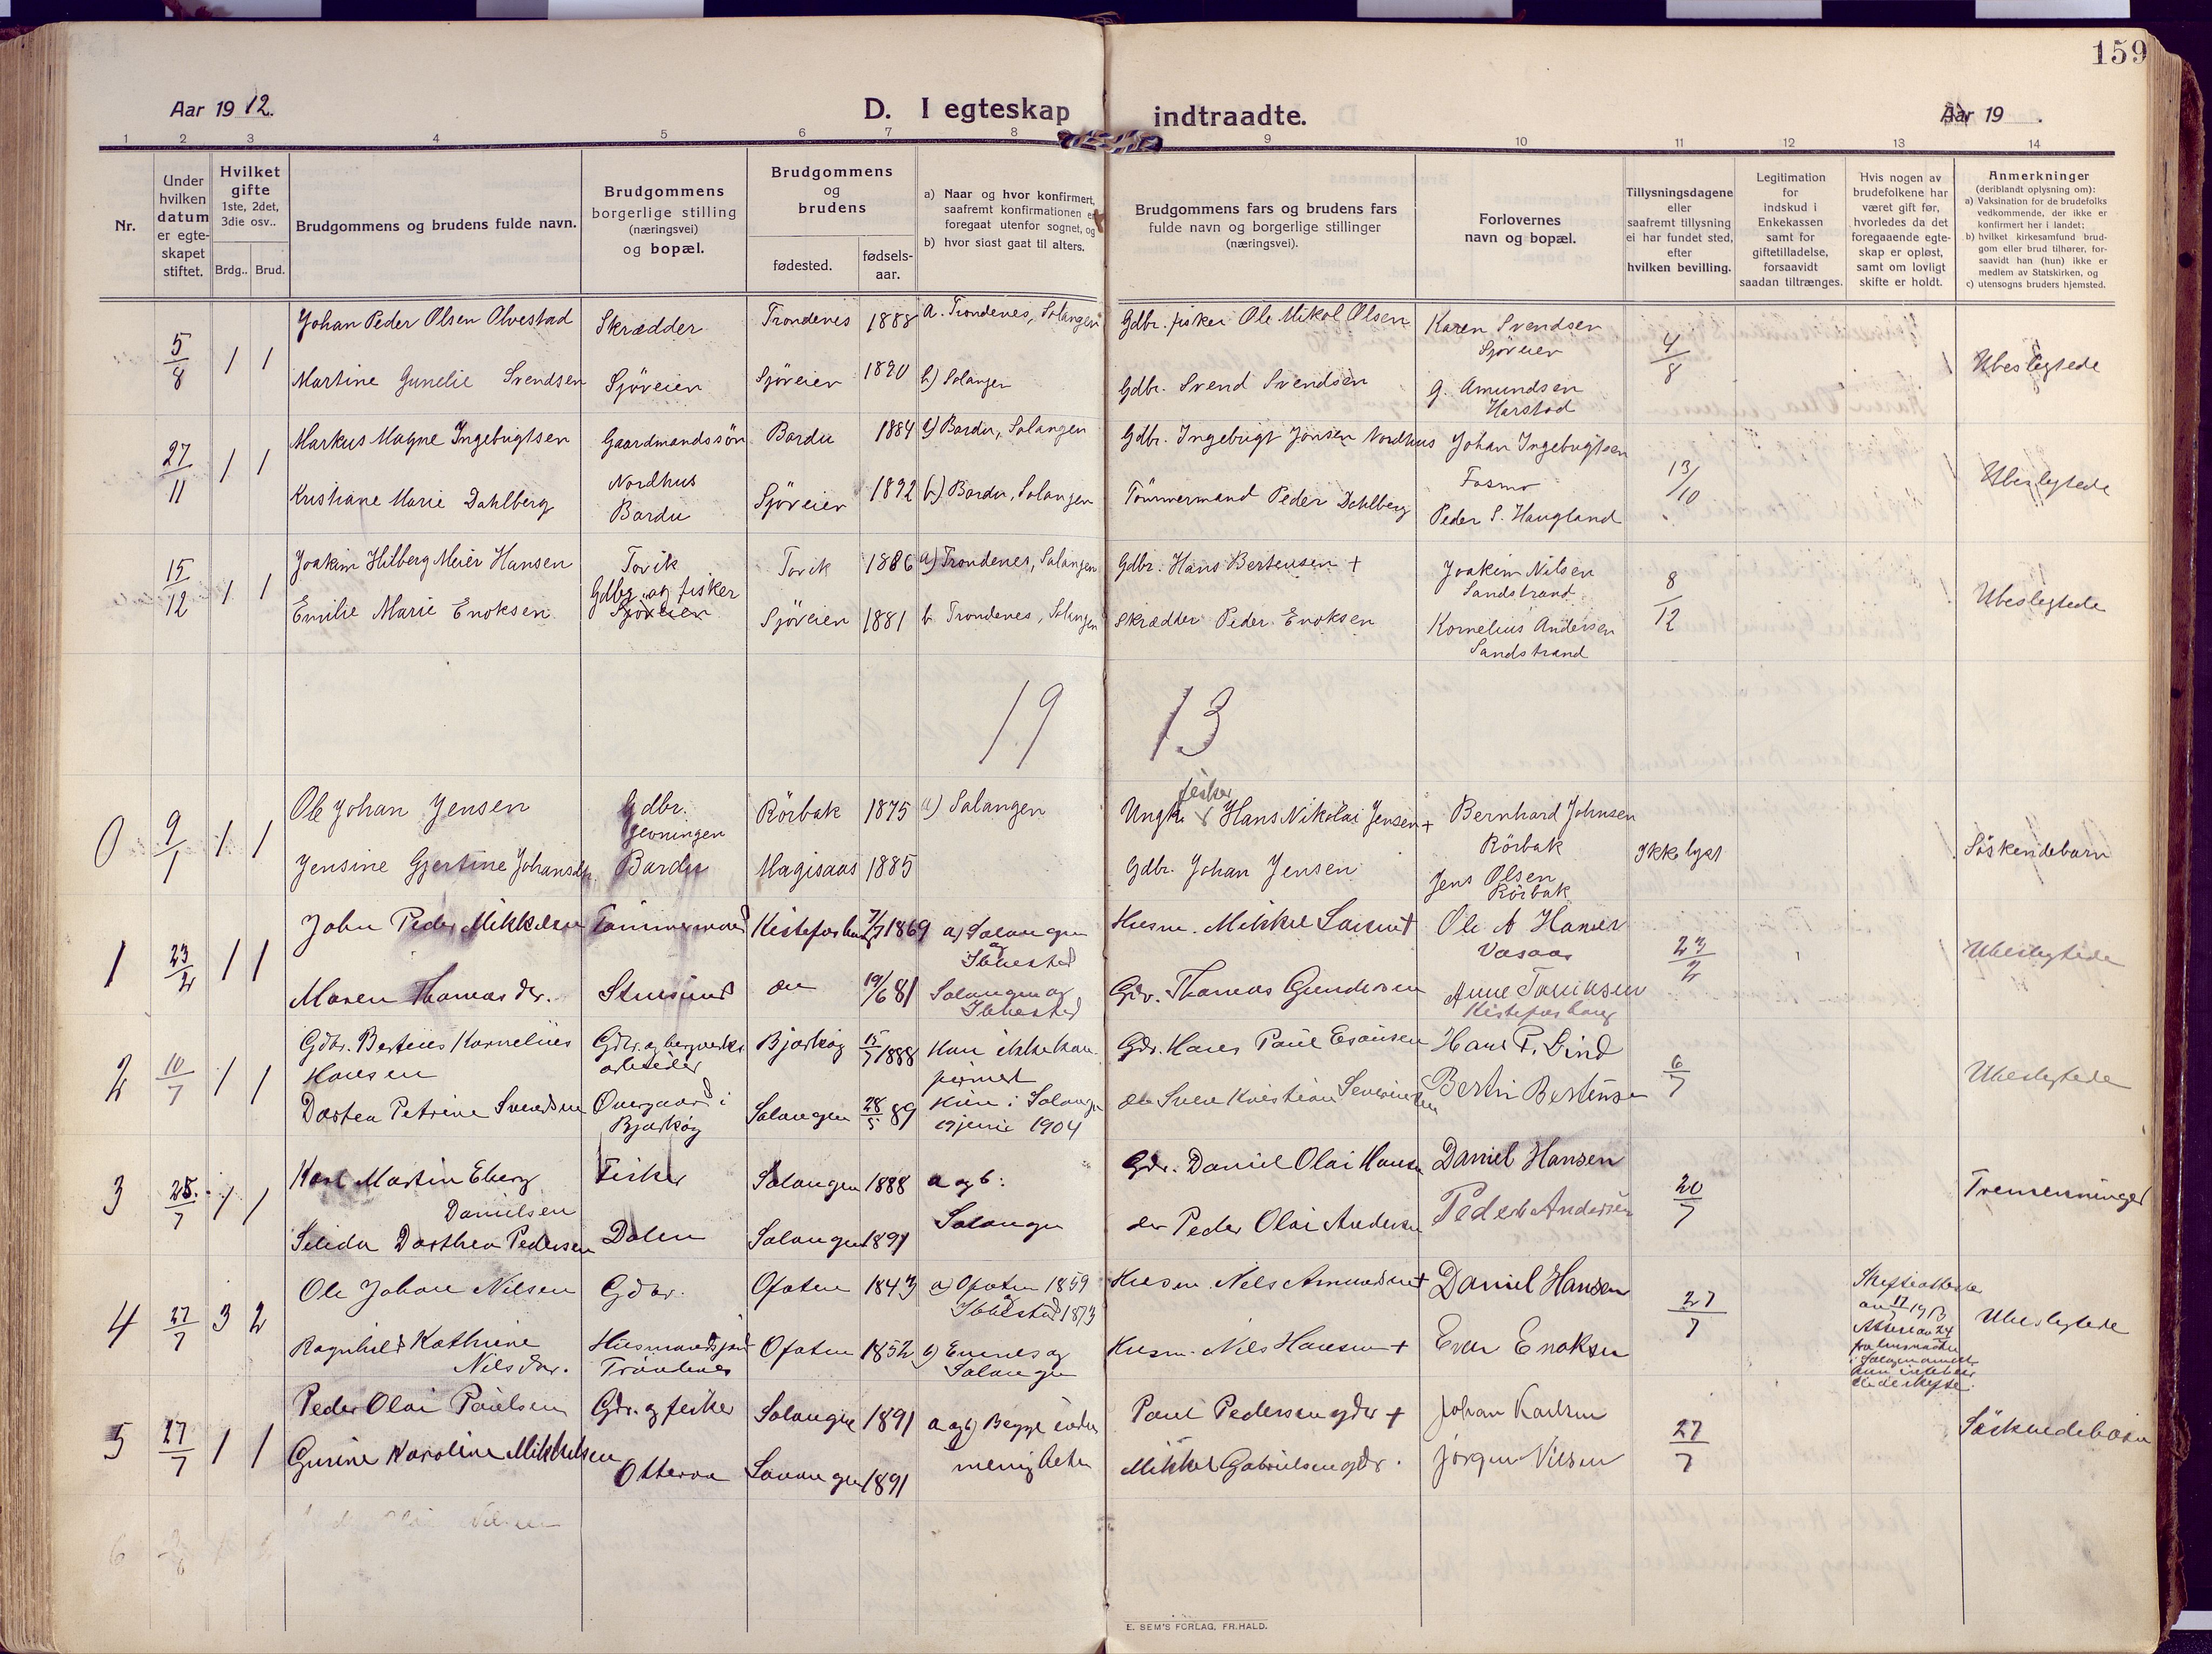 159
Aar 19 12.
D. I egteskap indtraadte.
Aar 19 .
1 2 3 4 5 6 7 8 9 10 11 12 13 14
Nr.
Under hvilken datum er egteskapet stiftet.
Hvilket gifte 1ste, 2det, 3die osv..
Brdg.. Brud.
Brudgommens og brudens fulde navn.
Brudgommens borgerlige stilling (næringsvei) og bopæl.
Brudgommens og brudens
fødested.
fødsels-aar.
a) Naar og hvor konfirmert, saafremt konfirmationen er foregaat utenfor sognet, og
b) hvor sidst gaat til alters.
Brudgommens fars og brudens fars fulde navn og borgerlige stillinger (næringsvei).
Forlovernes navn og bopæl.
Tillysningsdagene eller saafremt tillysning ei har fundet sted, efter hvilken bevilling.
Legitimation for indskud i Enkekassen samt for giftetilladelse, forsaavidt saadan tiltrænges.
Hvis nogen av brudefolkene har været gift før, hvorledes da det foregaaende egteskap er opløst, samt om lovligt skifte er holdt.
Anmerkninger (deriblandt oplysning om):
a) Vaksination for de brudefolks vedkommende, der ikke er konfirmert her i landet;
b) hvilket kirkesamfund brudgom eller brud tilhører, forsaavidt han (hun) ikke er medlem av Statskirken, og
c) utensogns bruders hjemsted.
5/8 1 1 Johan Peder Olsen Olvestad Skrædder Trondenes 1888 a. Trondenes, Salangen Gdbr. fisker Ole Mikal Olsen Karen Svendsen Sjöveien 4/8 Ubeslegtede
Martine Gunelie Svendsen Sjöveien Sjöveien 1890 b) Salangen Gdbr. Svend Svendsen G. Amundsen Harstad
27/11 1 1 Markus Magne Ingebrigtsen Gaardmandssön Bardu 1884 a) Bardu, Salangen Gdbr. Ingebrigt Jonsen Nordhus Johan Ingebrigtsen Fosmo 13/10 Ubeslegtede
Kristiane Marie Dahlberg Nordhus Bardu Sjöveien 1892 b) Bardu, Salangen Tömmermand Peder Dahlberg Peder S. Haugland
15/12 1 1 Joakim Hilberg Meier Hansen Tovik Gdbr. og fisker Tovik 1886 a) Trondenes, Salangen Gdbr. Hans Bertensen + Joakim Nilsen Sandstrand 8/12 Ubeslegtede
Emilie Marie Enoksen Sjöveien Sjöveien 1881 b. Trondenes, Salangen Skrædder Peder Enoksen Kornelius Andersen Sandstrand
19 13
0 9/1 1 1 Ole Johan Jensen Gdbr. Jevningen Rörbak 1875 a) Salangen Ungk. fisker Hans Nikolai Jensen + Bernhard Johnsen Rörbak Ikke lyst Söskendebarn
Jensine Gjertine Johansdtr. Bardu Hagisaas 1885 Gdbr. Johan Jensen Jens Olsen Rörbak
1 23/2 1 1 John Peder Mikkelsen Tömmermand Kistefoshaug 7/7 1869 a) Salangen og Ibbestad Husm. Mikkel Larsen + Ole A Hansen Vasaas 23/2 Ubeslegtede
Maren Thomasdr. Strusund do 19/6 81 Salangen og Ibbestad Gdr. Thomas Gundersen Anne Tomassen Kistefoshaug
2 10/7 1 1 Gdbr. Berteus Kornelius Hansen Gdbr. og bergverksarbeider Bjarköy 15/7 1888 Han ikke konfirmert Gdr. Hans Paul Esaiasen Hans P. Lind 6/7 Ubeslegtede
Dortea Petrine Svendsen Overgaard i Bjarköy Salangen 28/5 89 hun i Salangen 19 juni 1904 do Svein Kristian Severinsen Bertin Bertensen
3 25/7 1 1 Karl Martin Eberg Danielsen Fisker Salangen 1888 a og b: Gdr. Daniel Olai Hansen Daniel Hansen 20/7 Tremenninger
Selida Dorthea Pedersen Dalen Salangen 1891 Salangen do Peder Olai Andersen Peder Andersen
4 27/7 3 2 Ole Johan Nilsen Gdbr. Ofoten 1843 a) Ofoten 1859 og Ibbestad 1873 Husm. Nils Amundsen + Daniel Hansen 27/7 Skifteattest av 17/7 1913 Ubeslegtede
Ragnhild Kathrine Nilsdtr. Ofoten 1852 b) Evenes og Salangen Husm. Nils Hansen + Evan Enoksen
5 27/7 1 1 Peder Olai Paulsen Gdr. og fisker Salangen 1891 a og b) Begge inden menigheten Paul Pedersen gdr + Johan Karlsen 27/7 Söskendebarn
Gurine Karoline Mikkelsen Otteraa Lavangen 1891 Mikkel Gabrielsen gdr. Jörgen Nilsen
6
E. SEM'S FORLAG, FR.HALD.